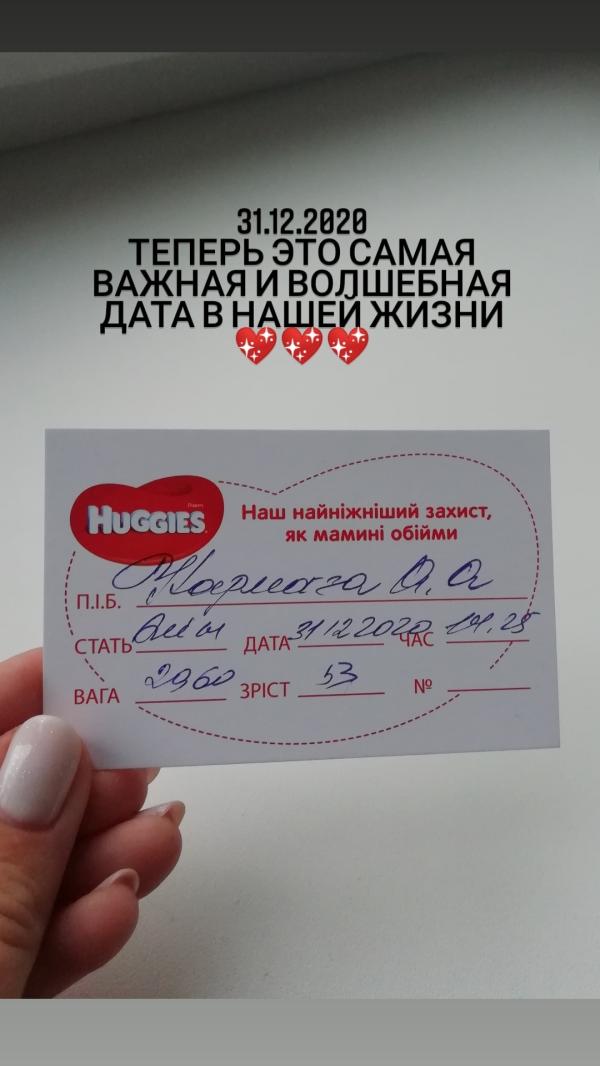 31.12.2020
ТЕПЕРЬ ЭТО САМАЯ
ВАЖНАЯ И ВОЛШЕБНАЯ
ДАТА В НАШЕЙ ЖИЗНИ
HUGGIES
Наш найніжніший захист,
як мамині обійми
П.І.Б. О. О
СТАТЬ ДАТА 31 12 2020 ЧАС 14.25
ВАГА 2960 ЗРІСТ 53 №